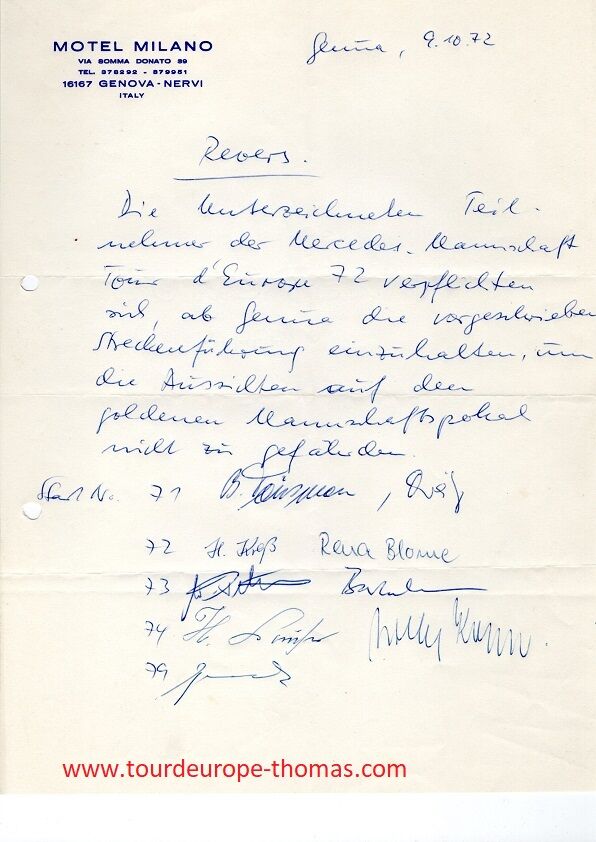 MOTEL MILANO
VIA SOMMA DONATO 39
TEL. 378292 - 379951
16167 GENOVA - NERVI
ITALY
Genua, 9.10.72
Revers.
Die Unterzeichneten Teil-
nehmer der Mercedes-Mannschaft
Tour d'Europe 72 verpflichten
sich, ab Genua die vorgeschrieben
Streckenführung einzuhalten, um
die Aussichten auf den
goldenen Mannschaftspokal
nicht zu gefährden.
Start No. 71
72 H. Kreß Rena Blome
73
74 H.
79
www.tourdeurope-thomas.com